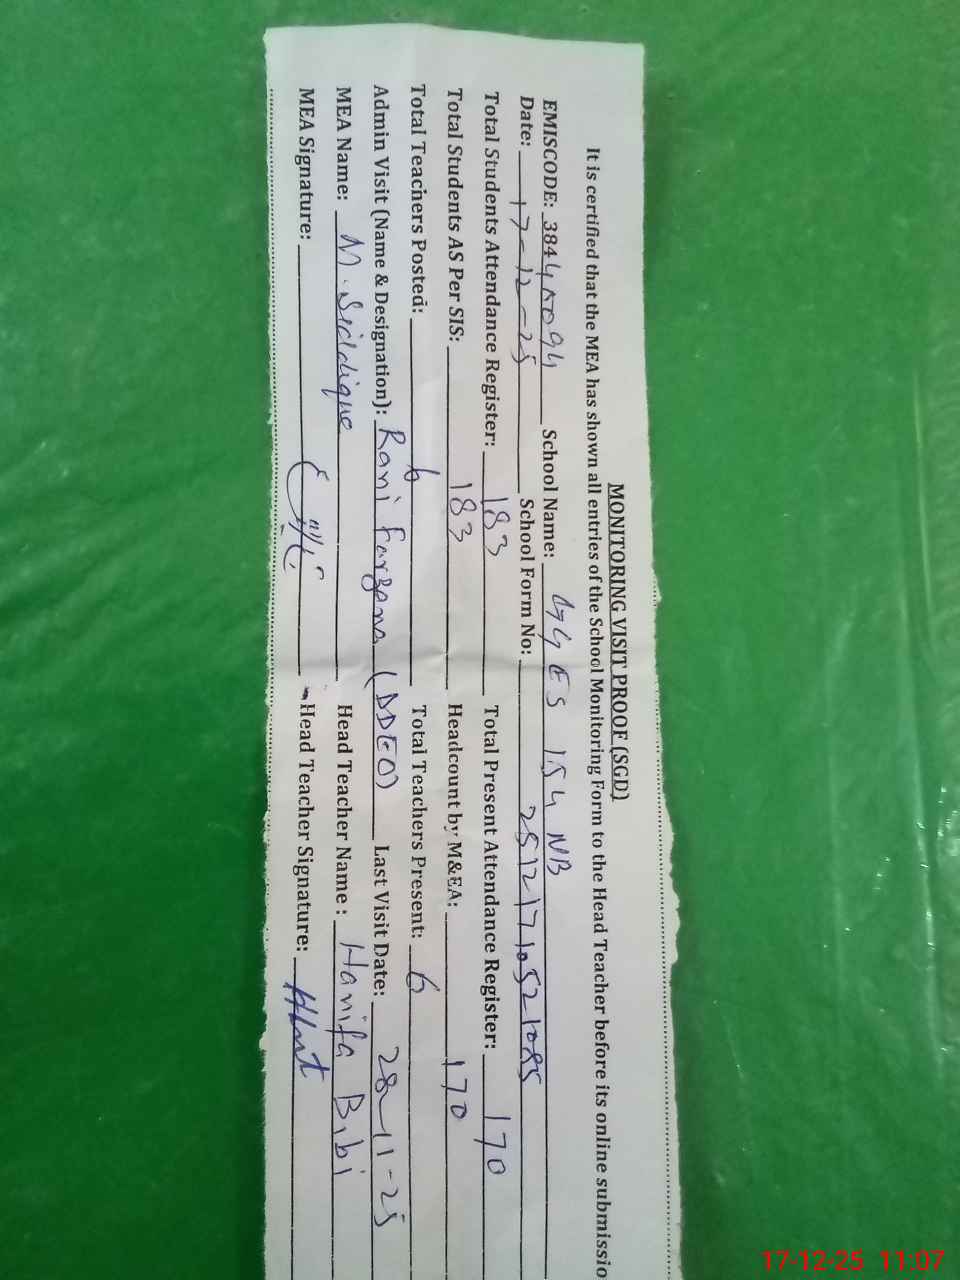 MONITORING VISIT PROOF (SGD)
It is certified that the MEA has shown all entries of the School Monitoring Form to the Head Teacher before its online submissio
EMISCODE: 38440094 School Name: GGES 154 NB
Date: 17-12-25 School Form No: 25121710521085
Total Students Attendance Register: 183 Total Present Attendance Register: 170
Total Students AS Per SIS: 183 Headcount by M&EA: 170
Total Teachers Posted: 6 Total Teachers Present: 6
Admin Visit (Name & Designation): Rani Farzana (DDEO) Last Visit Date: 28-11-25
MEA Name: M. Siddique Head Teacher Name : Hanifa Bibi
MEA Signature: Head Teacher Signature:
17-12-25 11:07